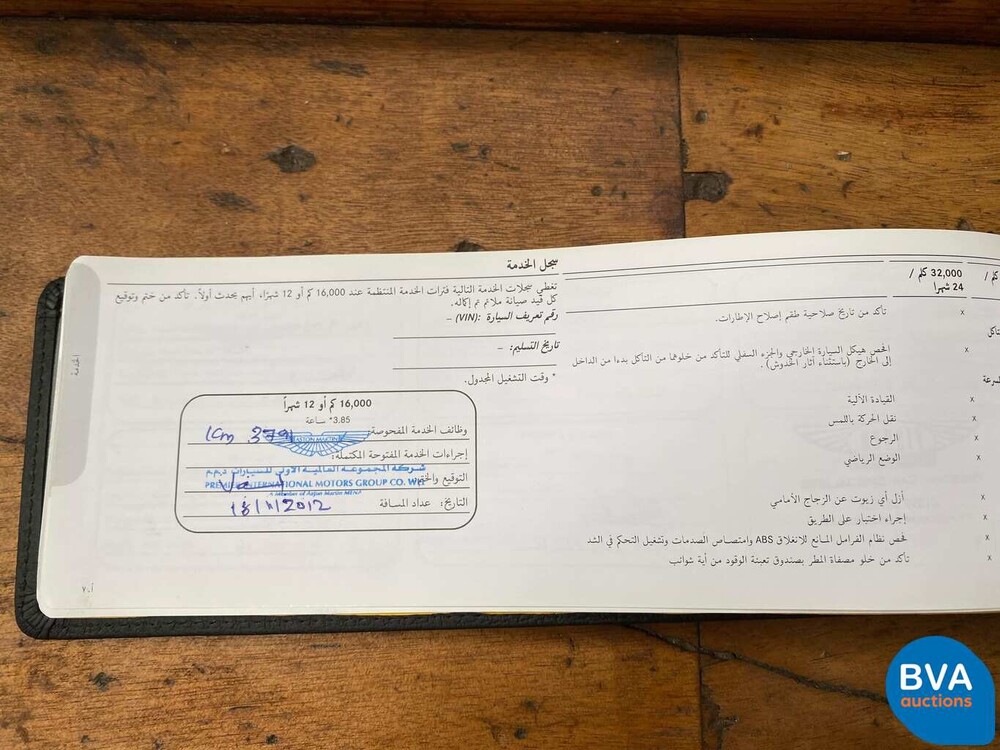 كلم /
32,000 كلم /
24 شهرا
تأكد من تاريخ صلاحية طقم إصلاح الإطارات. x
افحص هيكل السيارة الخارجي والجزء السفلي للتأكد من خلوهما من التآكل بدءا من الداخل x
إلى الخارج (باستثناء آثار الخدوش).
القيادة الآلية x
نقل الحركة باللمس x
الرجوع x
الوضع الرياضي x
أزل أي زيوت عن الزجاج الأمامي x
إجراء اختبار على الطريق x
فحص نظام الفرامل المانع للانغلاق ABS وامتصاص الصدمات وتشغيل التحكم في الشد x
تأكد من خلو مصفاة المطر بصندوق تعبئة الوقود من أية شوائب x
سجل الخدمة
تغطي سجلات الخدمة التالية فترات الخدمة المنتظمة عند 16,000 كم أو 12 شهرًا، أيهم يحدث أولاً. تأكد من ختم وتوقيع
كل قيد صيانة ملائم تم إكماله.
رقم تعريف السيارة (VIN): –
تاريخ التسليم: –
* وقت التشغيل المجدول.
16,000 كم أو 12 شهراً
3.85* ساعة
وظائف الخدمة المفحوصة:
ASTON MARTIN
إجراءات الخدمة المفتوحة المكتملة:
شركة المجموعة العالمية الأولى للسيارات ذ.م.م
التوقيع والختم
PREMIER INTERNATIONAL MOTORS GROUP CO. WLL
A Member of Aston Martin MENA
التاريخ: عداد المسافة
الخدمة
أ-٧
BVA
auctions